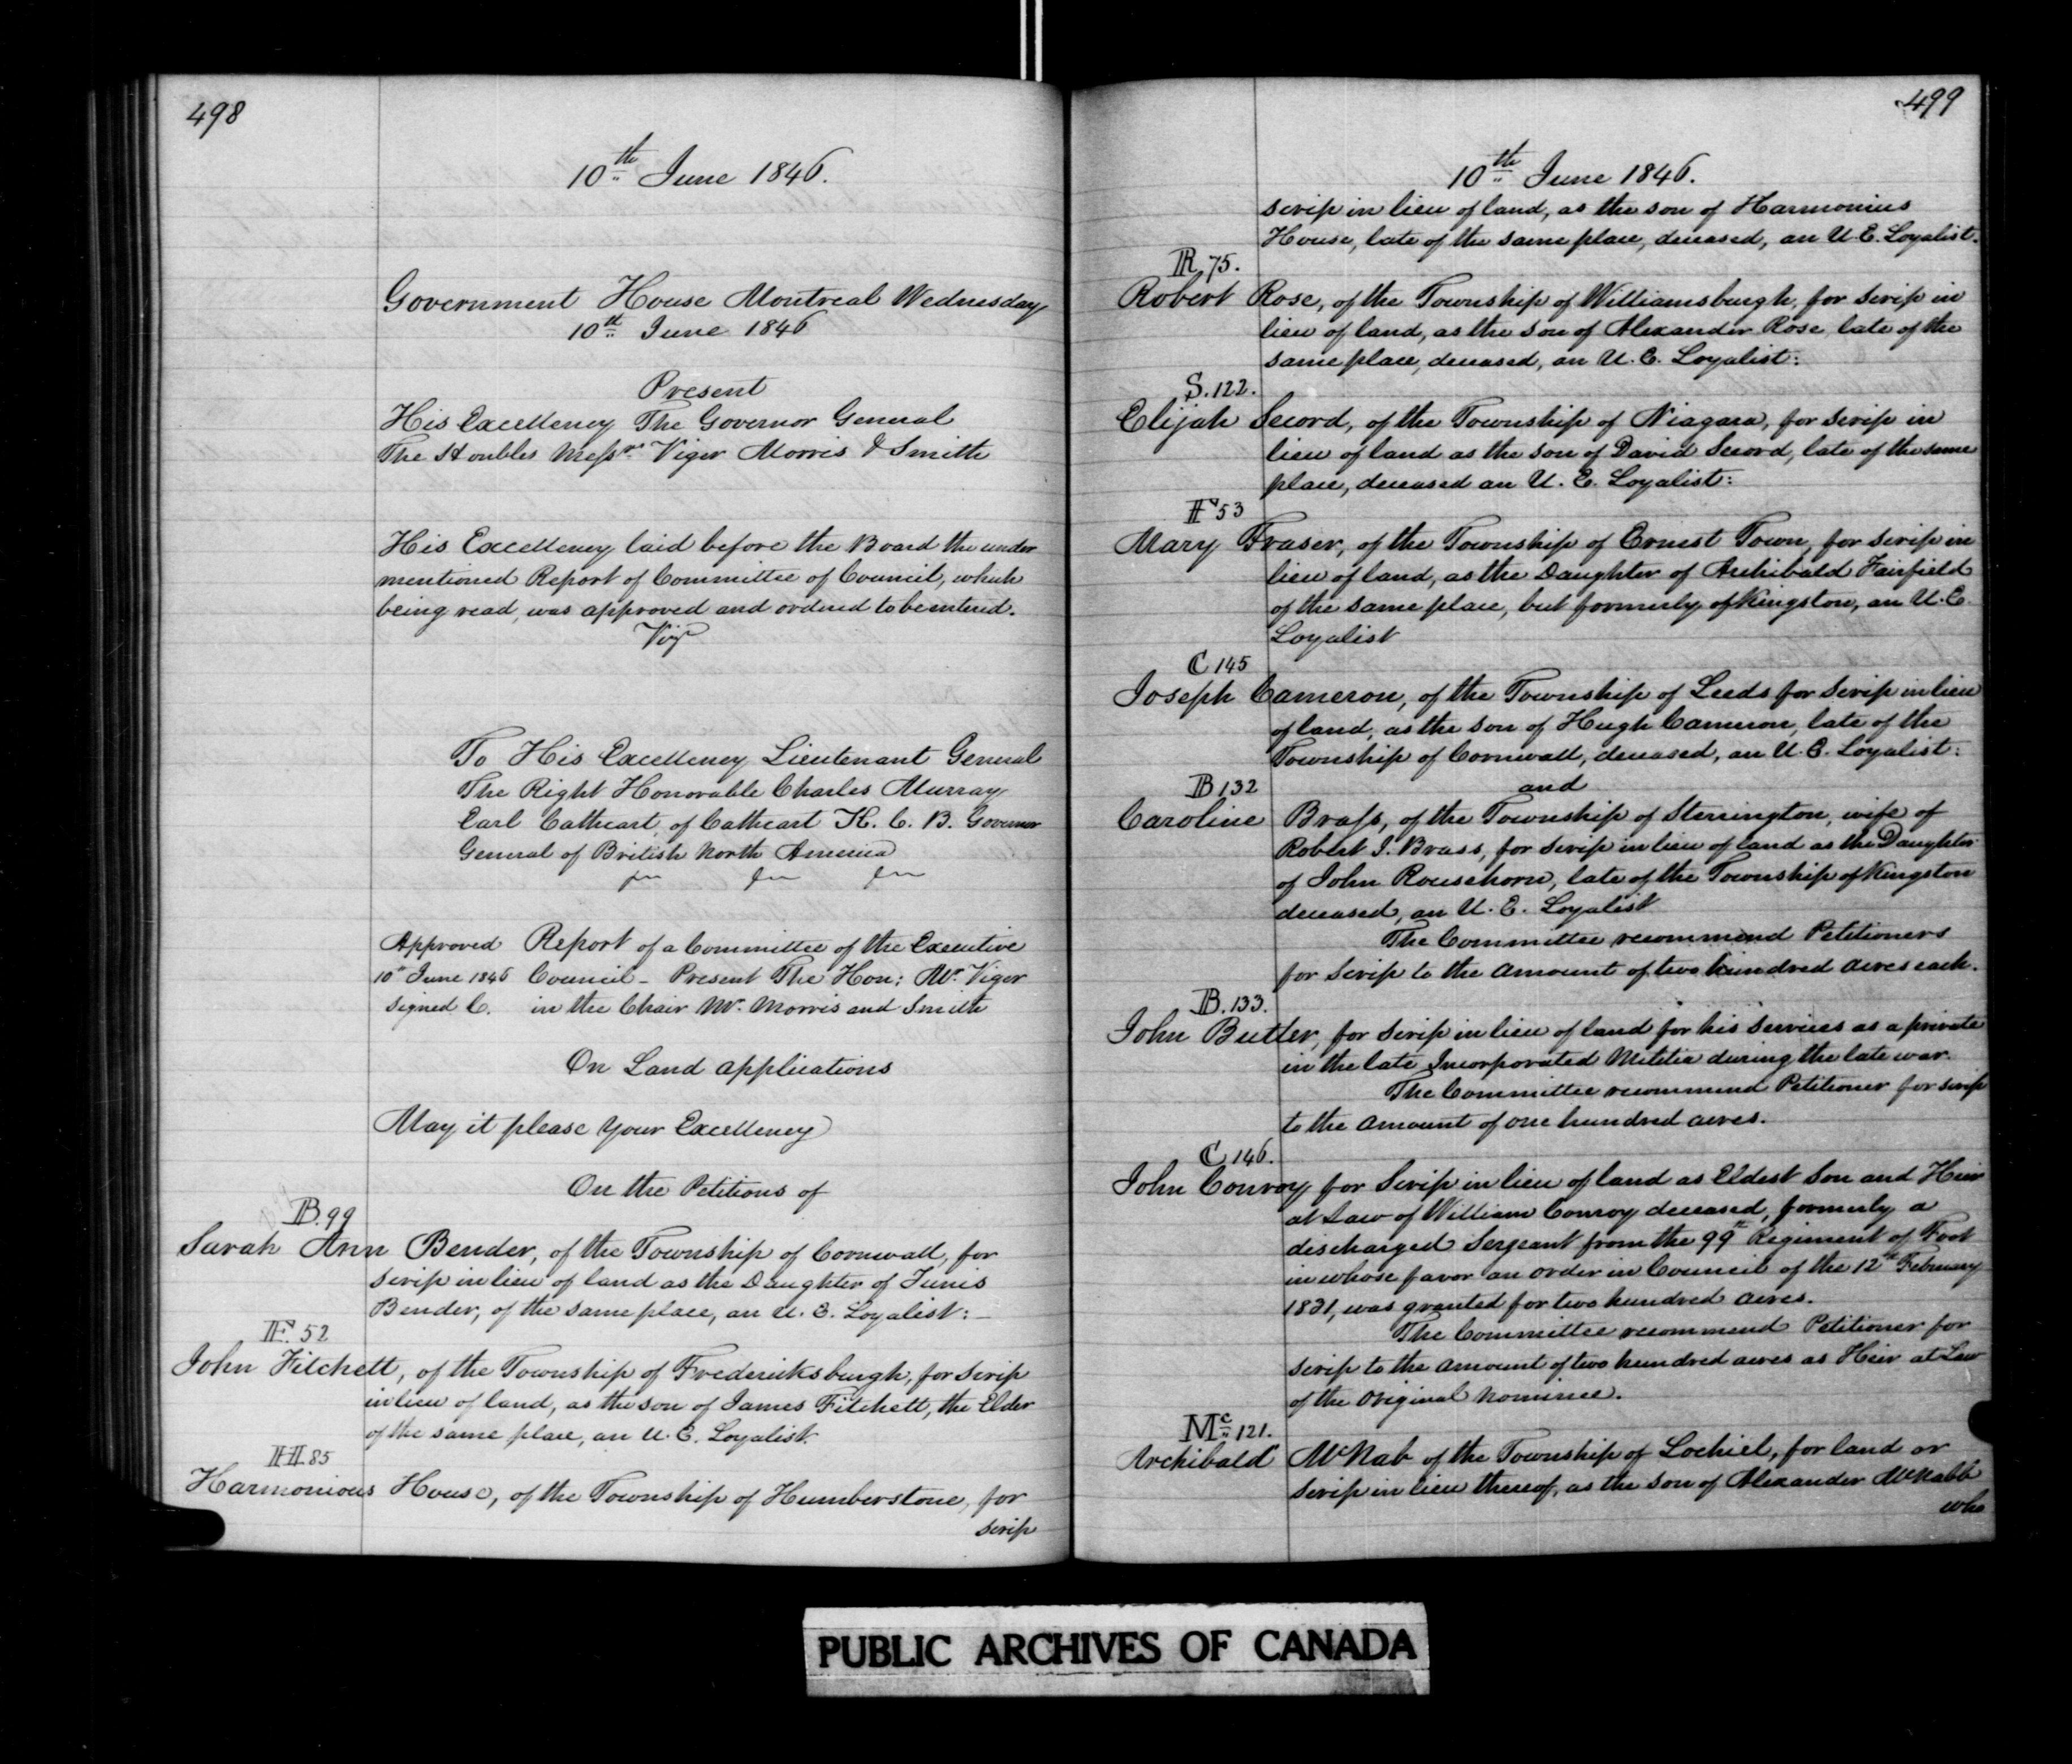 498
10th June 1846.
Government House Montreal Wednesday
10th June 1846
Present
His Excellency The Governor General
The Honbles Messrs Viger Morris & Smith
His Excellency laid before the Board the under
mentioned Report of Committee of Council, which
being read, was approved and ordered to be entered.
Viz
To His Excellency Lieutenant General
The Right Honorable Charles Murray
Earl Cathcart, of Cathcart K. C. B. Governor
General of British North America
&c &c &c
Approved Report of a Committee of the Executive
10th June 1846 Council - Present The Hon: Mr. Viger
Signed C. in the Chair Mr. Morris and Smith
On Land applications
May it please Your Excellency
On the Petitions of
B.99
Sarah Ann Bender, of the Township of Cornwall, for
scrip in lieu of land as the Daughter of Tunis
Bender, of the same place, an U. E. Loyalist:-
F. 52
John Fitchett, of the Township of Fredericksburgh, for Scrip
in lieu of land, as the son of James Fitchett, the Elder
of the same place, an U. E. Loyalist.
H.85
Harmonious House, of the Township of Humberstone, for
scrip
499
10th June 1846.
scrip in lieu of land, as the son of Harmonius
House, late of the same place, deceased, an U. E. Loyalist.
R.75.
Robert Rose, of the Township of Williamsburgh, for scrip in
lieu of land, as the son of Alexander Rose, late of the
same place, deceased, an U. E. Loyalist:
S.122.
Elijah Secord, of the Township of Niagara, for scrip in
lieu of land as the son of David Secord, late of the same
place, deceased an U. E. Loyalist:
F 53
Mary Fraser, of the Township of Ernest Town, for scrip in
lieu of land, as the Daughter of Archibald Fairfield
of the same place, but formerly of Kingston, an U. E.
Loyalist
C 145
Joseph Cameron, of the Township of Leeds for scrip in lieu
of land, as the son of Hugh Cameron, late of the
Township of Cornwall, deceased, an U. E. Loyalist:
and
B 132
Caroline Brass, of the Township of Storrington, wife of
Robert I. Brass, for scrip in lieu of land as the Daughter
of John Rousehorn, late of the Township of Kingston
deceased, an U. E. Loyalist
The Committee recommend Petitioners
for scrip to the amount of two hundred acres each.
B.133.
John Butler, for scrip in lieu of land for his services as a private
in the late Incorporated Militia during the late war.
The Committee recommend Petitioner for scrip
to the amount of one hundred acres.
C 146.
John Conroy for Scrip in lieu of land as Eldest Son and Heir
at Law of William Conroy deceased, formerly a
discharged Sergeant from the 99th Regiment of Foot
in whose favor an order in Council of the 12th February
1831, was granted for two hundred acres.
The Committee recommend Petitioner for
scrip to the amount of two hundred acres as Heir at Law
of the Original Nominee.
Mc 121.
Archibald McNab of the Township of Lochiel, for land or
scrip in lieu thereof, as the son of Alexander McNabb
who
PUBLIC ARCHIVES OF CANADA